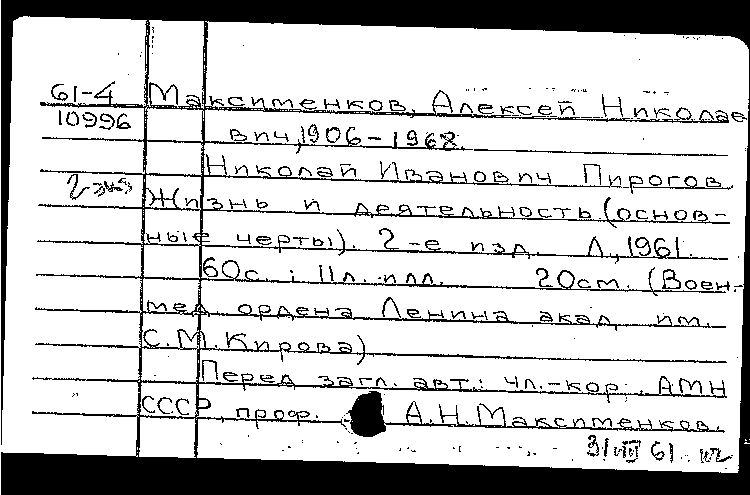 61-4 Максименков, Алексей Николае
10996 вич, 1906-1968.
Николай Иванович Пирогов.
2 экз Жизнь и деятельность (основ-
ные черты). 2-е изд. Л., 1961.
60с.; 11л. илл. 20см. (Воен-
мед ордена Ленина акад. им.
С.М.Кирова)
Перед загл. авт.: чл.-кор. АМН
СССР, проф. А.Н.Максименков.
31/VIII 61